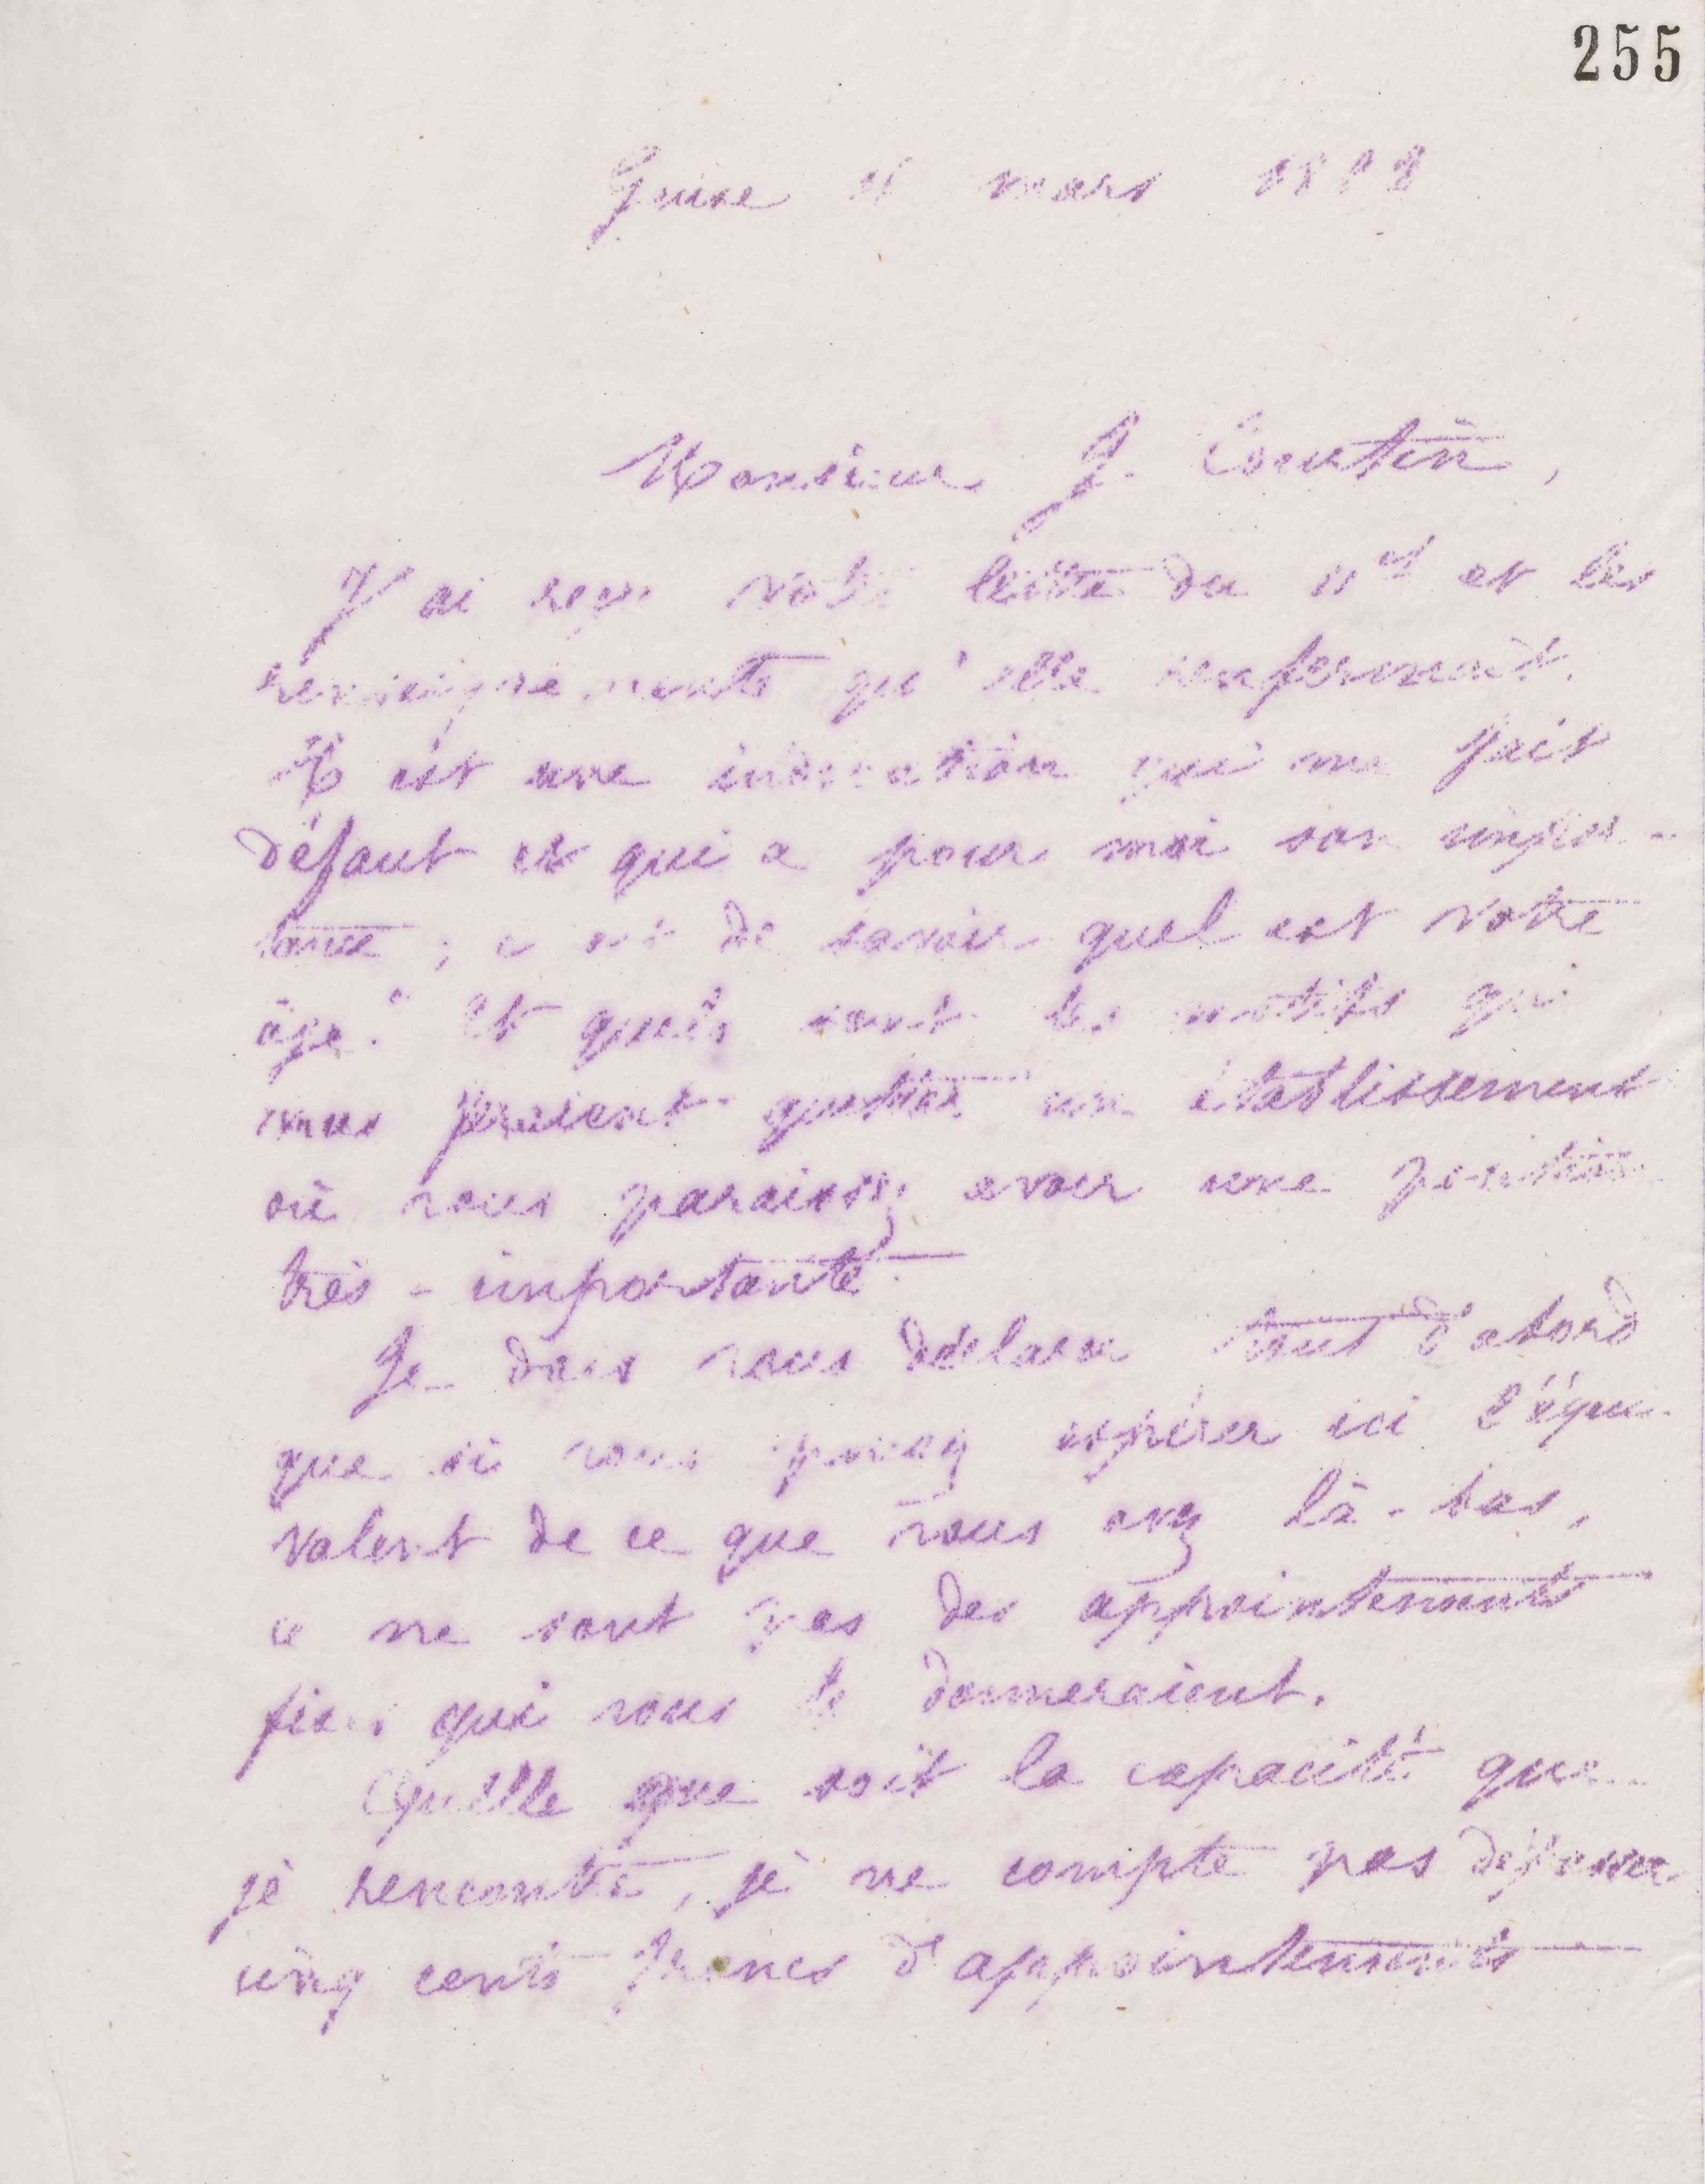 255
Guise mars
Monsieur J. Coutin,
J'ai reçu votre lettre du 11 ct et les
renseignements qu'elle renfermait.
Il est une indication qui me fait
défaut et qui a pour moi son impor-
tance ; c'est de savoir quel est votre
âge. Et quels sont les motifs qui
vous feraient quitter un établissement
où vous paraissez avoir une position
très-importante.
Je dois vous déclarer tout d'abord
que si vous pouvez espérer ici l'équi-
valent de ce que vous avez là-bas,
ce ne sont pas des appointements
fixes qui vous le donneraient.
Quelle que soit la capacité que
je rencontre, je ne compte pas dépasser
cinq cents francs d'appointements